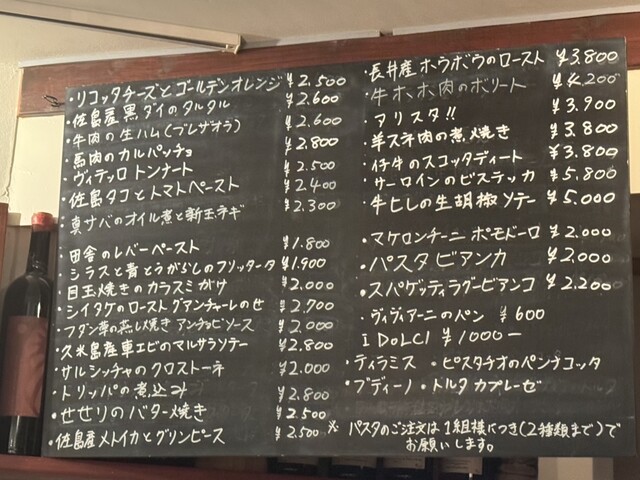 ・リコッタチーズとゴールデンオレンジ ¥2,500
・佐島産黒ダイのタルタル ¥2,600
・牛肉の生ハム(ブレザオラ) ¥2,600
・馬肉のカルパッチョ ¥2,800
・ヴィテッロ トンナート ¥2,500
・佐島タコとトマトペースト ¥2,400
・真サバのオイル煮と新玉ネギ ¥2,300
・田舎のレバーペースト ¥1,800
・シラスと青とうがらしのフリッタータ ¥1,900
・目玉焼きのカラスミがけ ¥2,000
・シイタケのロースト グアンチャーレのせ ¥2,700
・フダン草の蒸し焼き アンチョビソース ¥2,000
・久米島産車エビのマルサラソテー ¥2,800
・サルシッチャのクロストーネ ¥2,000
・トリッパの煮込み ¥2,800
・せせりのバター焼き ¥2,500
・佐島産メトイカとグリンピース ¥2,500
・長井産ホウボウのロースト ¥3,800
・牛ホホ肉のボリート ¥4,200
・アリスタ!! ¥3,900
・羊スネ肉の煮焼き ¥3,800
・仔牛のスコッタディート ¥3,800
・サーロインのビステッカ ¥5,800
・牛ヒレの生胡椒ソテー ¥5,000
・マケロンチーニ ポモドーロ ¥2,000
・パスタビアンカ ¥2,000
・スパゲッティラグービアンコ ¥2,200
・ヴィヴィアーニのパン ¥600
I DOLCI ¥1000-
・ティラミス ・ピスタチオのパンナコッタ
・ブディーノ ・トルタカプレーゼ
※ パスタのご注文は1組様につき(2種類まで)で
お願いします。